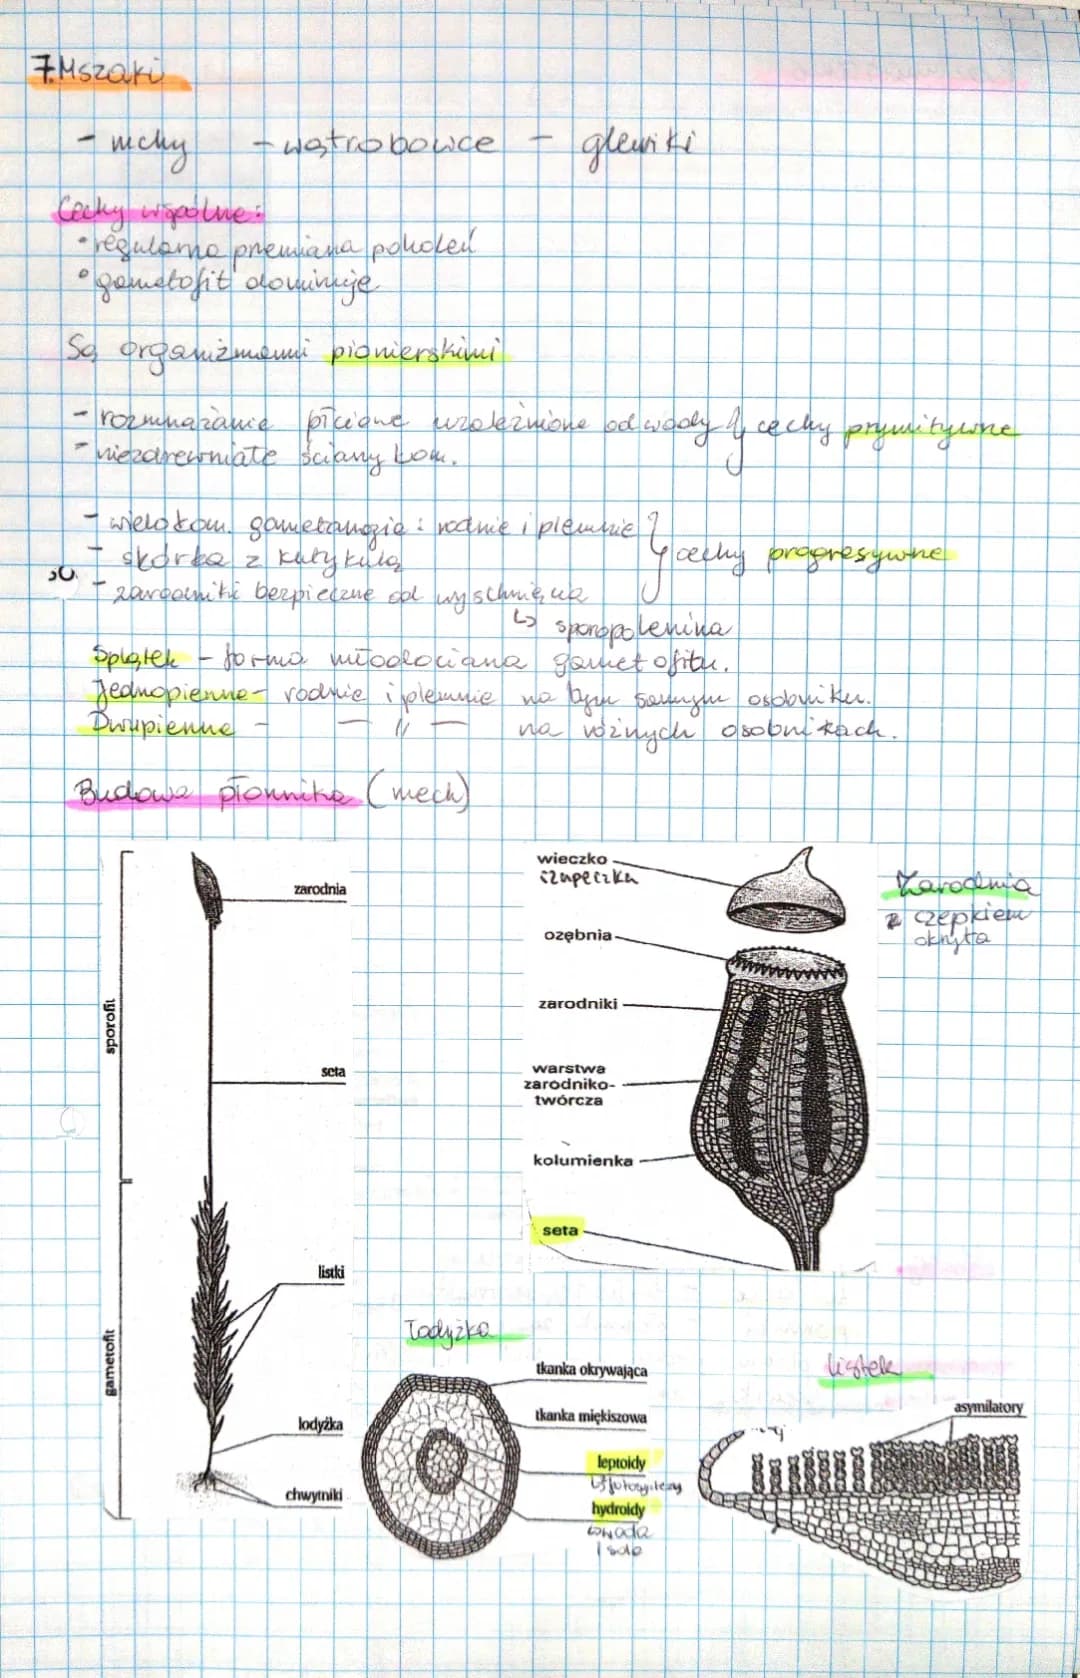 7. Mszaki
- mchy - wątrobowce - glewiki
Cechy wspólne:
• regularna przemiana pokoleń
• gametofit dominuje
Są organizmami pionierskimi
- rozmnażanie płciowe uzależnione od wody } cechy prymitywne
- niezdrewniałe ściany kom.
- wielokom. gametangia: rodnie i plemnie } cechy progresywne
- skórka z kutykulą
- zarodniki bezpieczne od wyschnięcia
↳ sporopolenina
Splątek - forma młodociana gametofitu.
Jednopienne - rodnie i plemnie na tym samym osobniku.
Dwupienne - — // — na różnych osobnikach.
Budowa płonnika (mech)
zarodnia
sporofit
seta
listki
gametofit
łodyżka
chwytniki
wieczko
czapeczka
ozębnia
zarodniki
warstwa
zarodniko-
twórcza
kolumienka
seta
Zarodnia
z czepkiem
okryta
Łodyżka
tkanka okrywająca
tkanka miękiszowa
leptoidy
hydroidy
↳ woda
i sole
listek
asymilatory